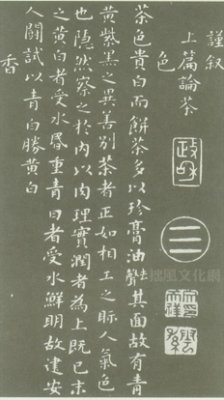 謹叙
上篇論茶
色
茶色貴白而餅茶多以珍膏油去聲其面故有青
黄紫黑之異善别茶者正如相工之眎人氣色
也隱然察之於内以肉理實潤者為上既已末
之黄白者受水昬重青白者受水鮮明故建安
人鬭試以青白勝黄白
香
政和
拙風文化網